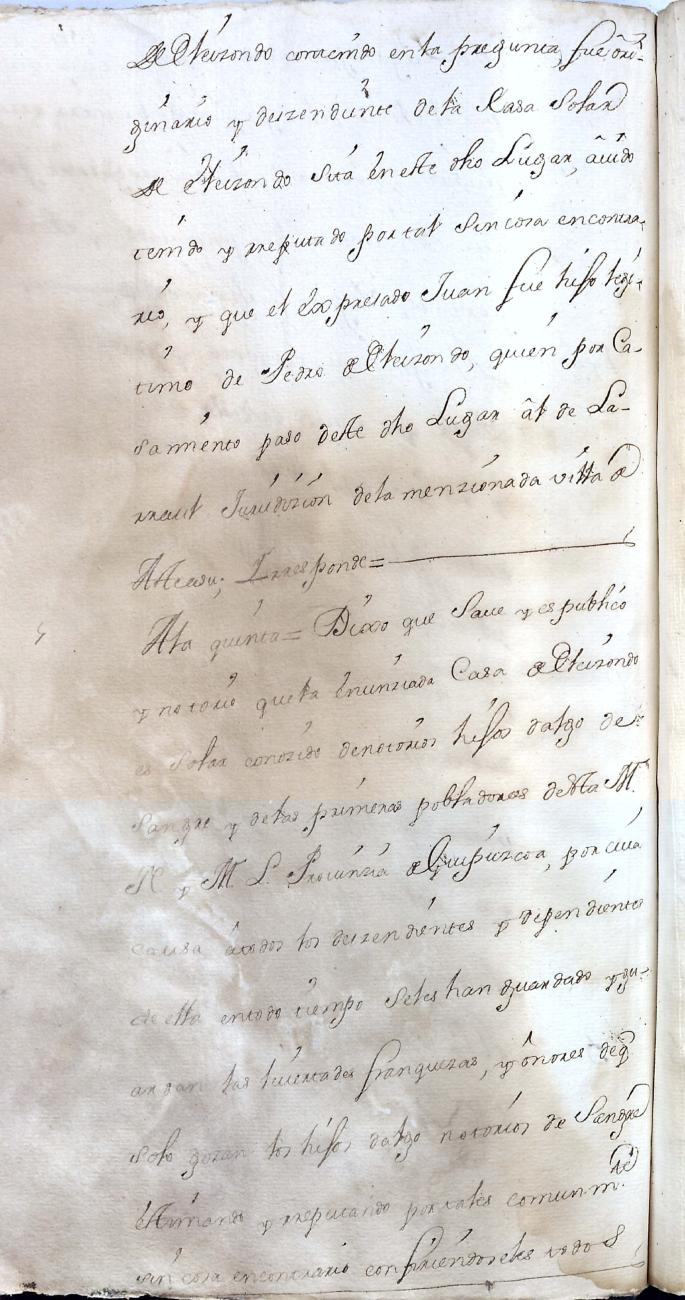 de Eleizondo contenido en la pregunta, fue òri-
ginario y deszendiente de la Casa Solar
de Eleizondo sita en este dho Lugar, àuido
tenido y rreputado por tal sin cosa en contra-
rio, y que el expresado Juan fue hijo legi-
timo de Pedro de Eleizondo, quien por Ca-
samiento paso deste dho Lugar âl de La-
rraul Juridizion de la menzionada villa de
Asteasu; Y rresponde=
A la quinta= Dixo que save y es publico
y notorio que la enunziada Casa de Eleizondo
es Solar conozido de notorios hijos dalgo de
sangre y de las primeras pobladoras de esta M.
N. y M. L. Provinzia de Guipuzcoa, por cuia
causa à todos los deszendientes y dependientes
de ella en todo tiempo se les han guardado y gu-
ardan las livertades franquezas, y ônores de q̃
solo gozan los hijos dalgo notorios de Sangre
estimando y rreputando por tales comunm.te
sin cosa en contrario confiriendoseles todos